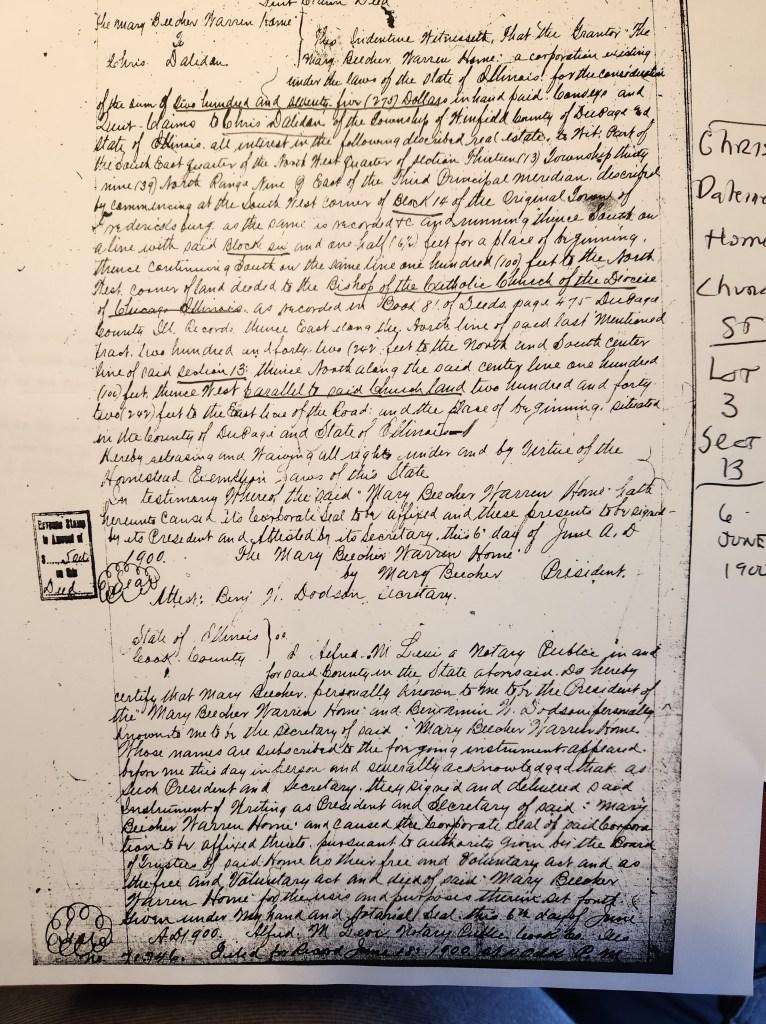 Quit Claim Deed
The Mary Beecher Warren Home
To
Chris Dalidan
This Indenture Witnesseth, That the Grantor "The
Mary Beecher Warren Home" a corporation existing
under the laws of the State of Illinois, for the consideration
of the sum of two hundred and seventy five (275) Dollars in hand paid. Conveys and
Quit-Claims to Chris Dalidan of the Township of Winfield County of DuPage and
State of Illinois. all interest in the following described real estate, to Wit. Part of
the South East quarter of the North West quarter of section Thirteen (13) Township thirty
nine (39) North Range Nine 9 East of the Third Principal Meridian, described
by commencing at the South West corner of Block 14 of the Original Town of
Fredericksburg, as the same is recorded &c and running thence South on
a line with said Block six and one half (6½) feet for a place of beginning,
thence continuing South on the same line one hundred (100) feet to the North
West corner of land deeded to the Bishop of the Catholic Church of the Diocese
of Chicago Illinois. as recorded in Book 81 of Deeds, page 475 DuPage
County Ill Records, thence East along the North line of said last Mentioned
tract. two hundred and forty two (242 feet to the North and South center
line of said section 13: thence North along the said center line one hundred
(100) feet, thence West parallel to said Church land two hundred and forty
two (242) feet to the East line of the Road: and the place of beginning, situated
in the County of DuPage and State of Illinois
Hereby releasing and Waiving all rights under and by Virtue of the
Homestead Exemption Laws of this State
In testimony Whereof the said "Mary Beecher Warren Home" hath
hereunto caused its Corporate Seal to be affixed and these presents to be signed
by its President and Attested by its Secretary, this 6" day of June A. D
1900. The Mary Beecher Warren Home
by Mary Beecher President.
Seal
Attest: Benj W. Dodson Secretary.
Revenue Stamp
to Amount of
$
on this
Deed
State of Illinois } ss
Cook County I Alfred. M Levi a Notary Public in and
for said County in the State aforesaid. Do hereby
certify that Mary Beecher. personally known to me to be the President of
the "Mary Beecher Warren Home" and Benjamin W. Dodson personally
known to me to be the Secretary of said "Mary Beecher Warren Home
Whose names are subscribed to the foregoing instrument appeared
before me this day in person and severally acknowledged that as
such President and Secretary. they signed and delivered said
Instrument of Writing as President and Secretary of said "Mary
Beecher Warren Home" and caused the Corporate Seal of said Corpora
tion to be affixed thereto. pursuant to authority given by the Board
of Trustees of said Home as their free and Voluntary Act and as
the free and Voluntary act and deed of said "Mary Beecher
Warren Home" for the uses and purposes therein set forth
Given under My hand and Notarial Seal this 6th day of June
A.D 1900. Alfred. M Levi Notary Public Cook Co. Ills
No Filed for Record June 18" 1900 at P. M
CHRIS
Home
Church
ST
LOT
3
SECT
13
6
JUNE
1900